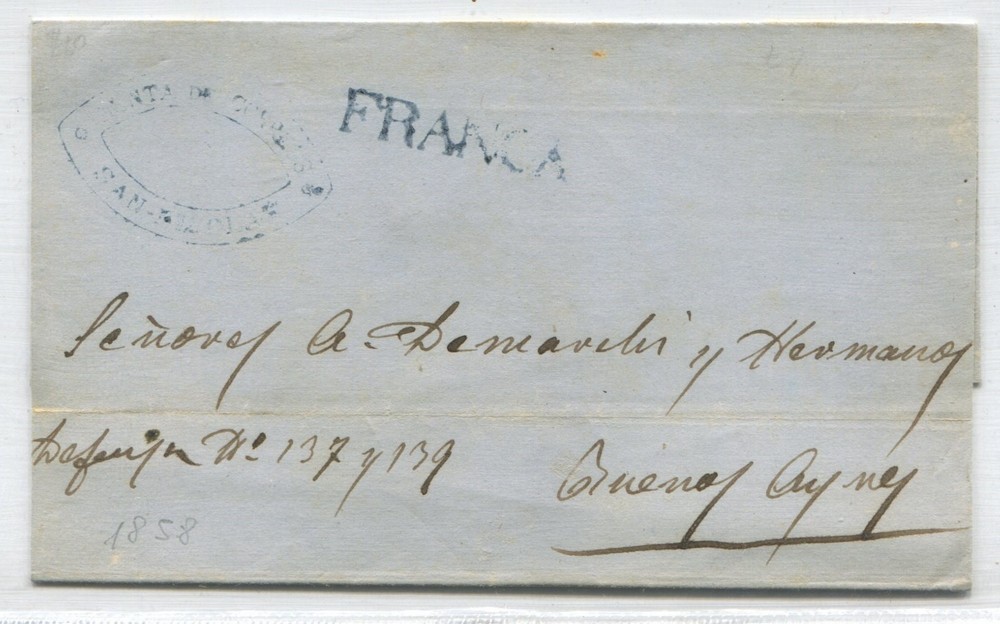 SAN-NICOLAS
FRANCA
Señores A. Demarchi y Hermanos
Defensa Nº 137 y 139
Buenos Ayres
1858